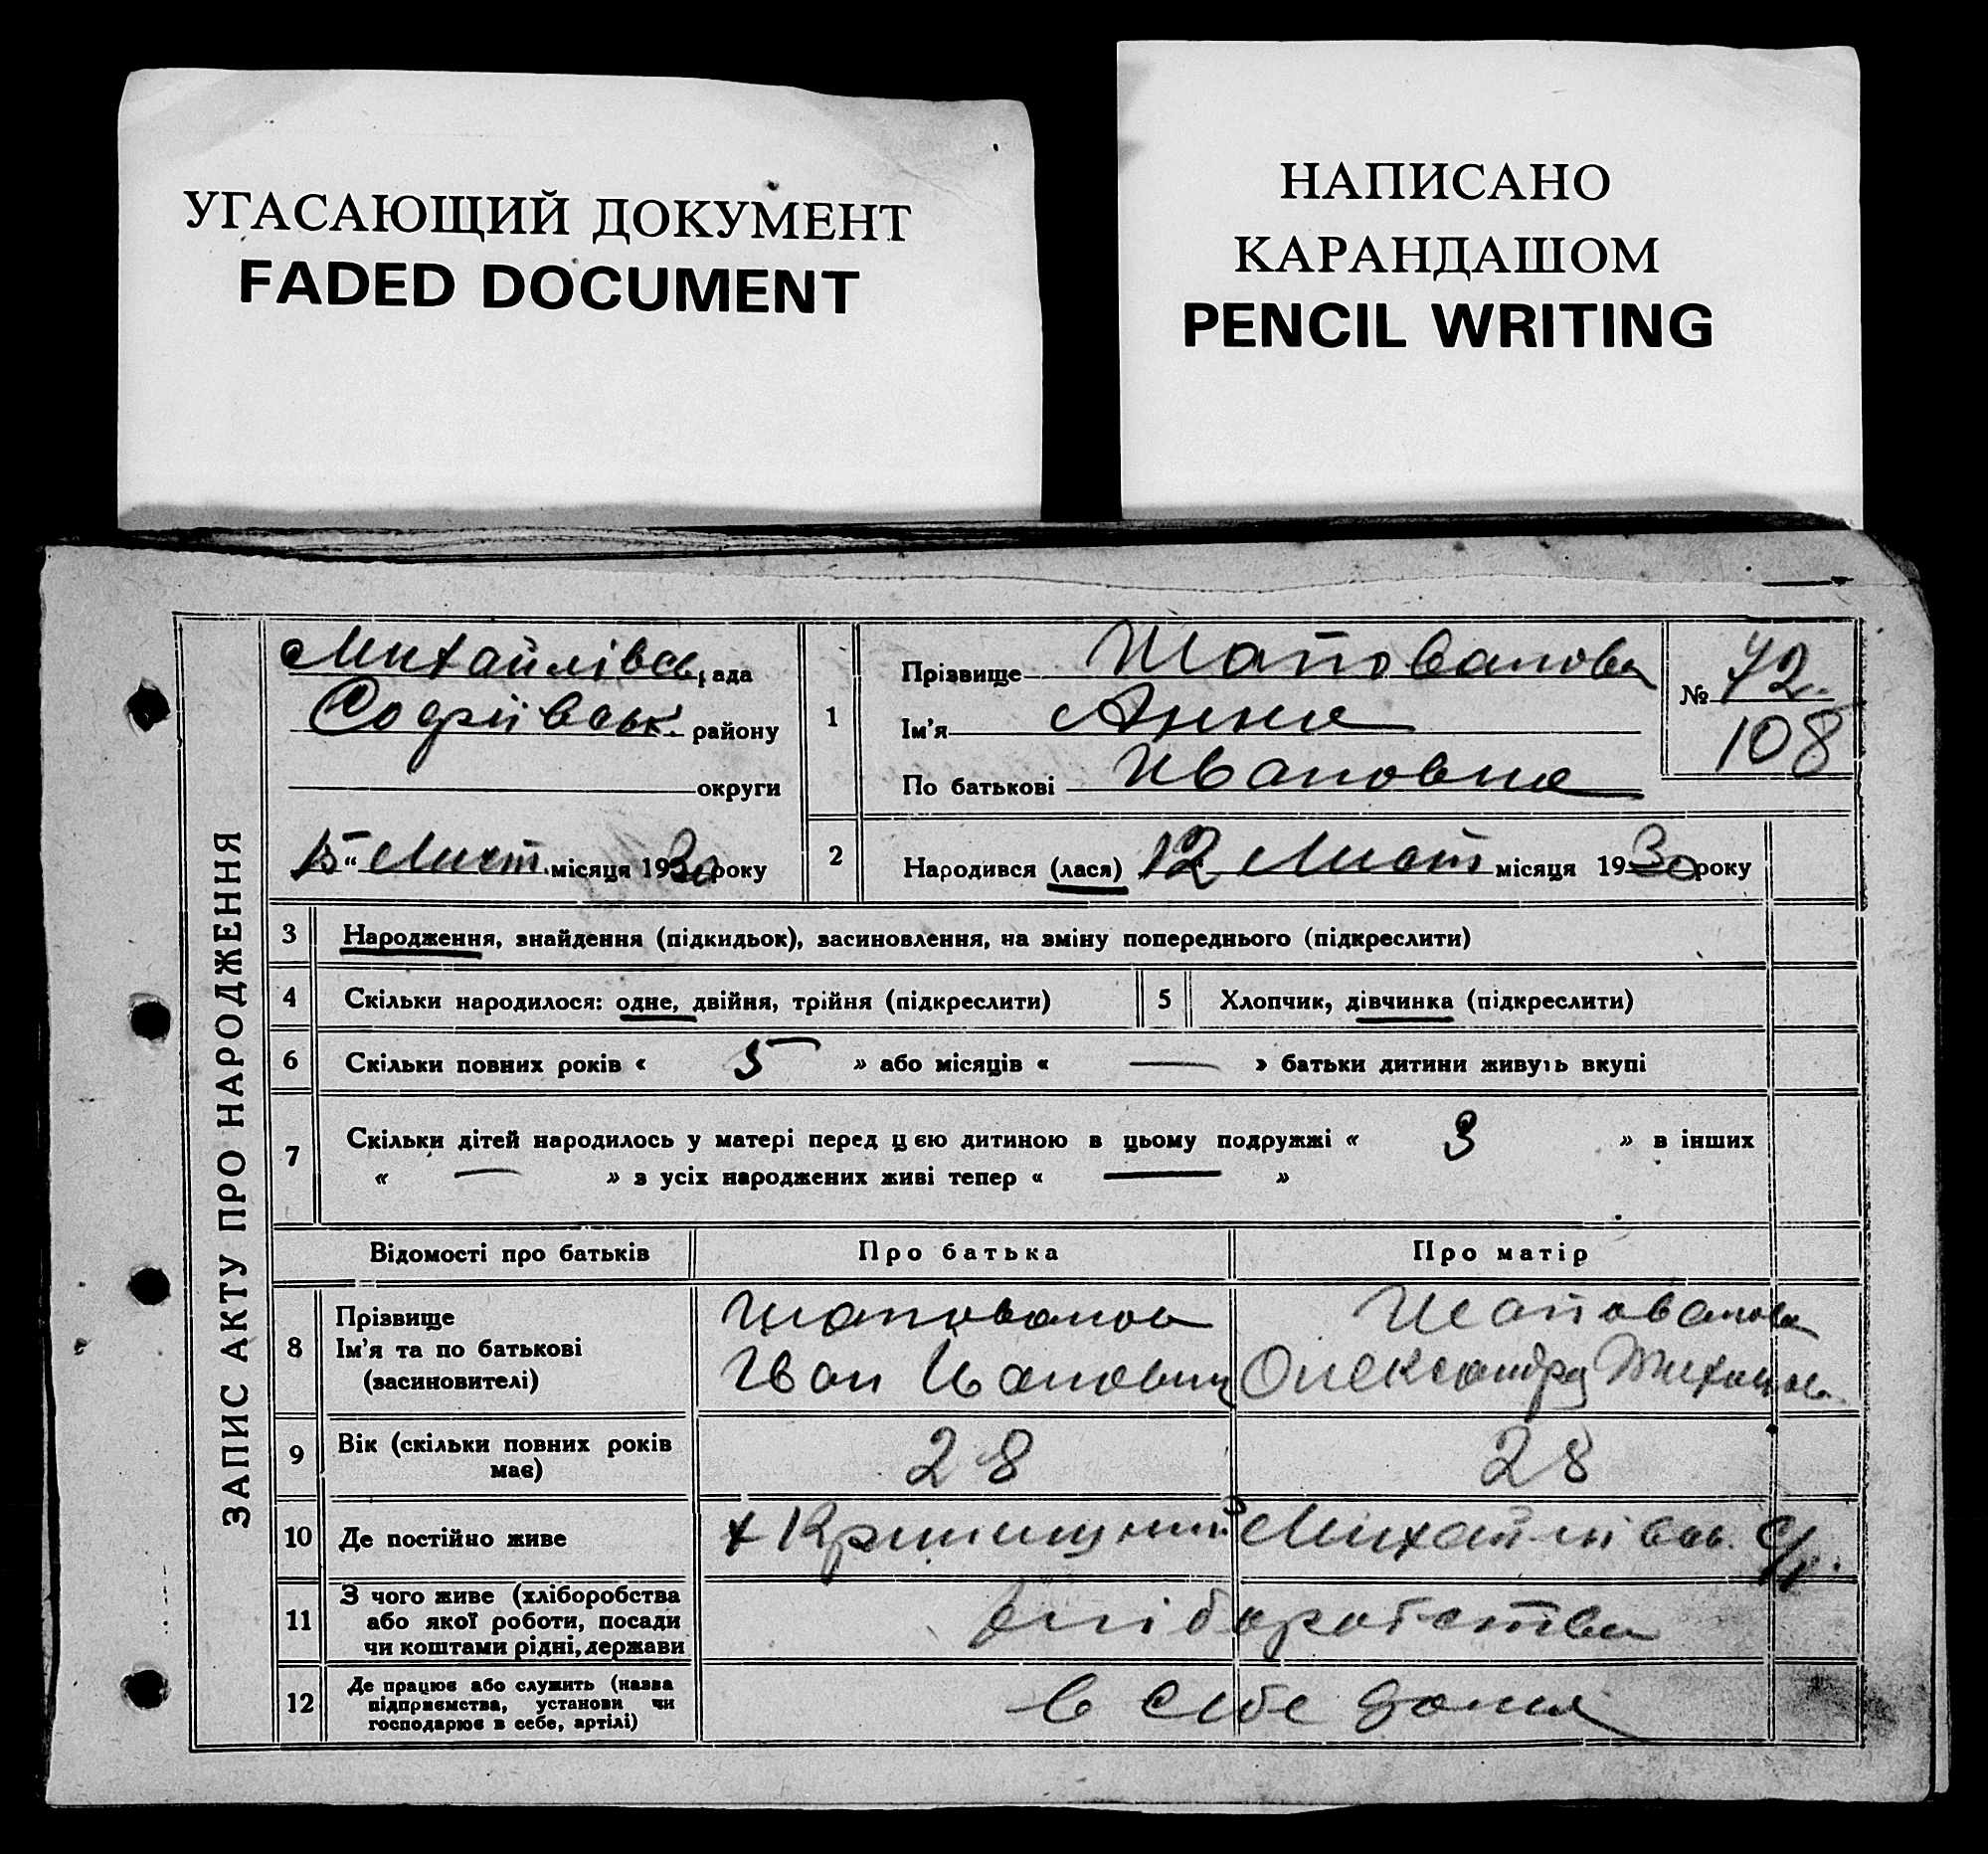 УГАСАЮЩИЙ ДОКУМЕНТ
FADED DOCUMENT
НАПИСАНО
КАРАНДАШОМ
PENCIL WRITING
ЗАПИС АКТУ ПРО НАРОДЖЕННЯ
Михайлівс. рада
Софіївськ. району
округи
15 " Лист. місяця 1930 року
1
Прізвище Шаповалова
Ім'я Анна
По батькові Ивановна
№ 42
108
2
Народився (лася) 12 Лист місяця 1930 року
3 Народження, знайдення (підкидьок), засиновлення, на зміну попереднього (підкреслити)
4 Скільки народилося: одне, двійня, трійня (підкреслити)
5 Хлопчик, дівчинка (підкреслити)
6 Скільки повних років « 5 » або місяців « — » батьки дитини живуть вкупі
7 Скільки дітей народилось у матері перед цією дитиною в цьому подружжі « 3 » в інших
« — » з усіх народжених живі тепер « — »
Відомості про батьків Про батька Про матір
8 Прізвище
Ім'я та по батькові
(засиновителі)
Шаповалов
Іван Іванович
Шаповалова
Олександра
9 Вік (скільки повних років
має)
28 28
10 Де постійно живе
Михайлівськ. С/р.
11 З чого живе (хліборобства
або якої роботи, посади
чи коштами рідні, держави
хліборобства
12 Де працює або служить (назва
підприємства, установи чи
господарює в себе, артілі)
в себе дома